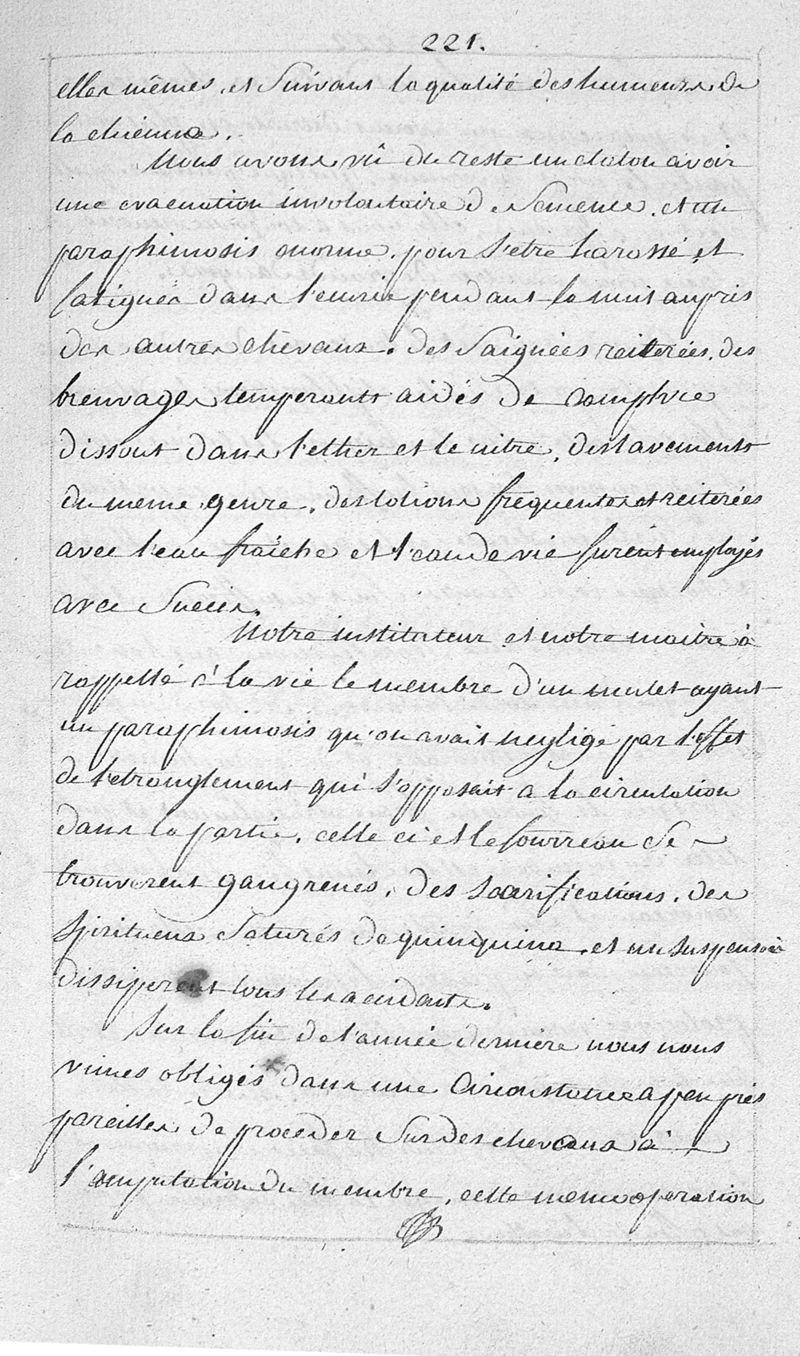 221.
elles mêmes, et suivant la qualité des humeurs de
la chienne.
Nous avons vû du reste un étalon avoir
une evacuation involontaire de semence, et un
paraphimosis enorme, pour s'etre harassé et
fatigués dans l'ecurie pendant la nuit aupris
des autres chevaux. des saignées reiterées, des
breuvages temperants aidés de camphre
dissout dans l'ether et le nitre, des lavements
du meme genre, des lotions frequentes et reiterées
avec l'eau fraîche et l'eau de vie furent employés
avec succès.
Notre instituteur et notre maitre à
rappellé à la vie le membre d'un mulet ayant
un paraphimosis qu'on avait negligé par l'effet
de l'etranglement qui s'opposait a la circulation
dans la partie, celle ci et le fourreau se
trouverent gangrenés, des scarifications, des
spiritueux saturés de quinquina, et un suspensoir
dissiperent tous les accidents.
Sur la fin de l'année derniere nous nous
vimes obligés dans une circonstance a peu près
pareilles de proceder sur des chevaux à
l'amputation du membre, cette meme operation